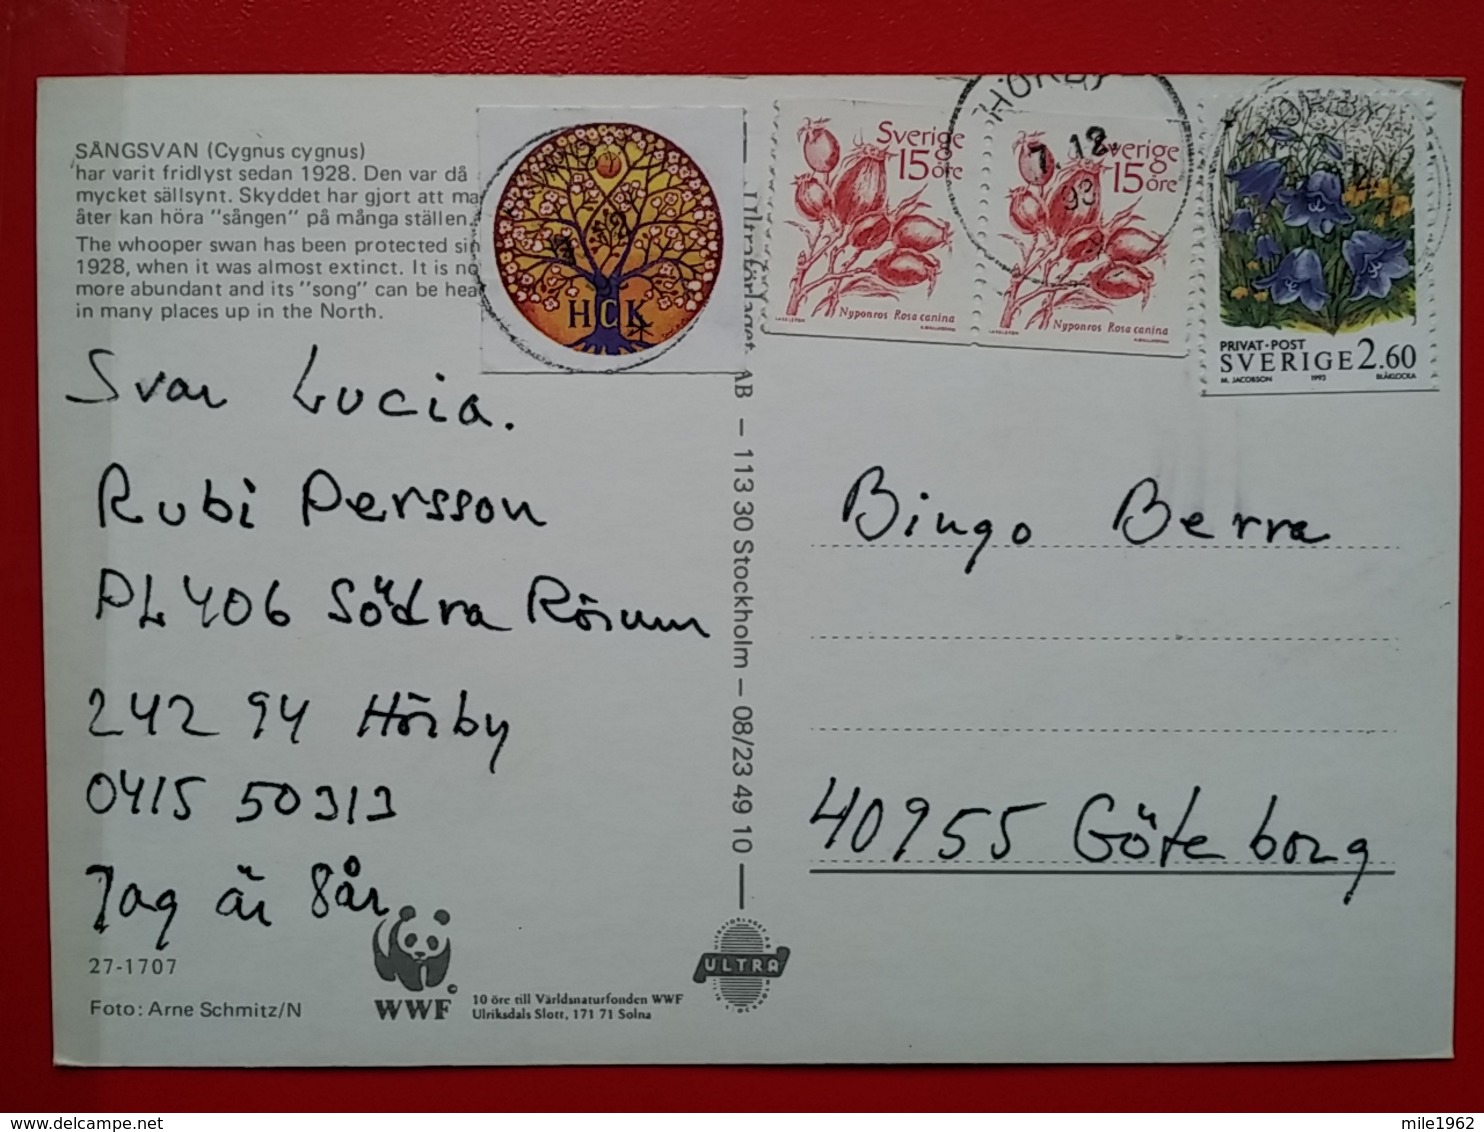 SÅNGSVAN (Cygnus cygnus)
har varit fridlyst sedan 1928. Den var då
mycket sällsynt. Skyddet har gjort att ma
åter kan höra "sången" på många ställen.
The whooper swan has been protected sin
1928, when it was almost extinct. It is no
more abundant and its "song" can be hea
in many places up in the North.
HCK
Sverige
15 öre
Nyponros Rosa canina
HÖRBY
7.12.
93
verige
15 öre
Nyponros Rosa canina
PRIVAT·POST
SVERIGE 2.60
M. JACOBSON 1993 BLÅKLOCKA
Svar Lucia.
Rubi Persson
PL 406 Södra Rörum
242 94 Hörby
0415 50313
Jag är 8år
Ultraförlaget AB – 113 30 Stockholm – 08/23 49 10
Bingo Berra
40955 Göteborg
27-1707
Foto: Arne Schmitz/N
WWF
10 öre till Världsnaturfonden WWF
Ulriksdals Slott, 171 71 Solna
ULTRA
mile1962